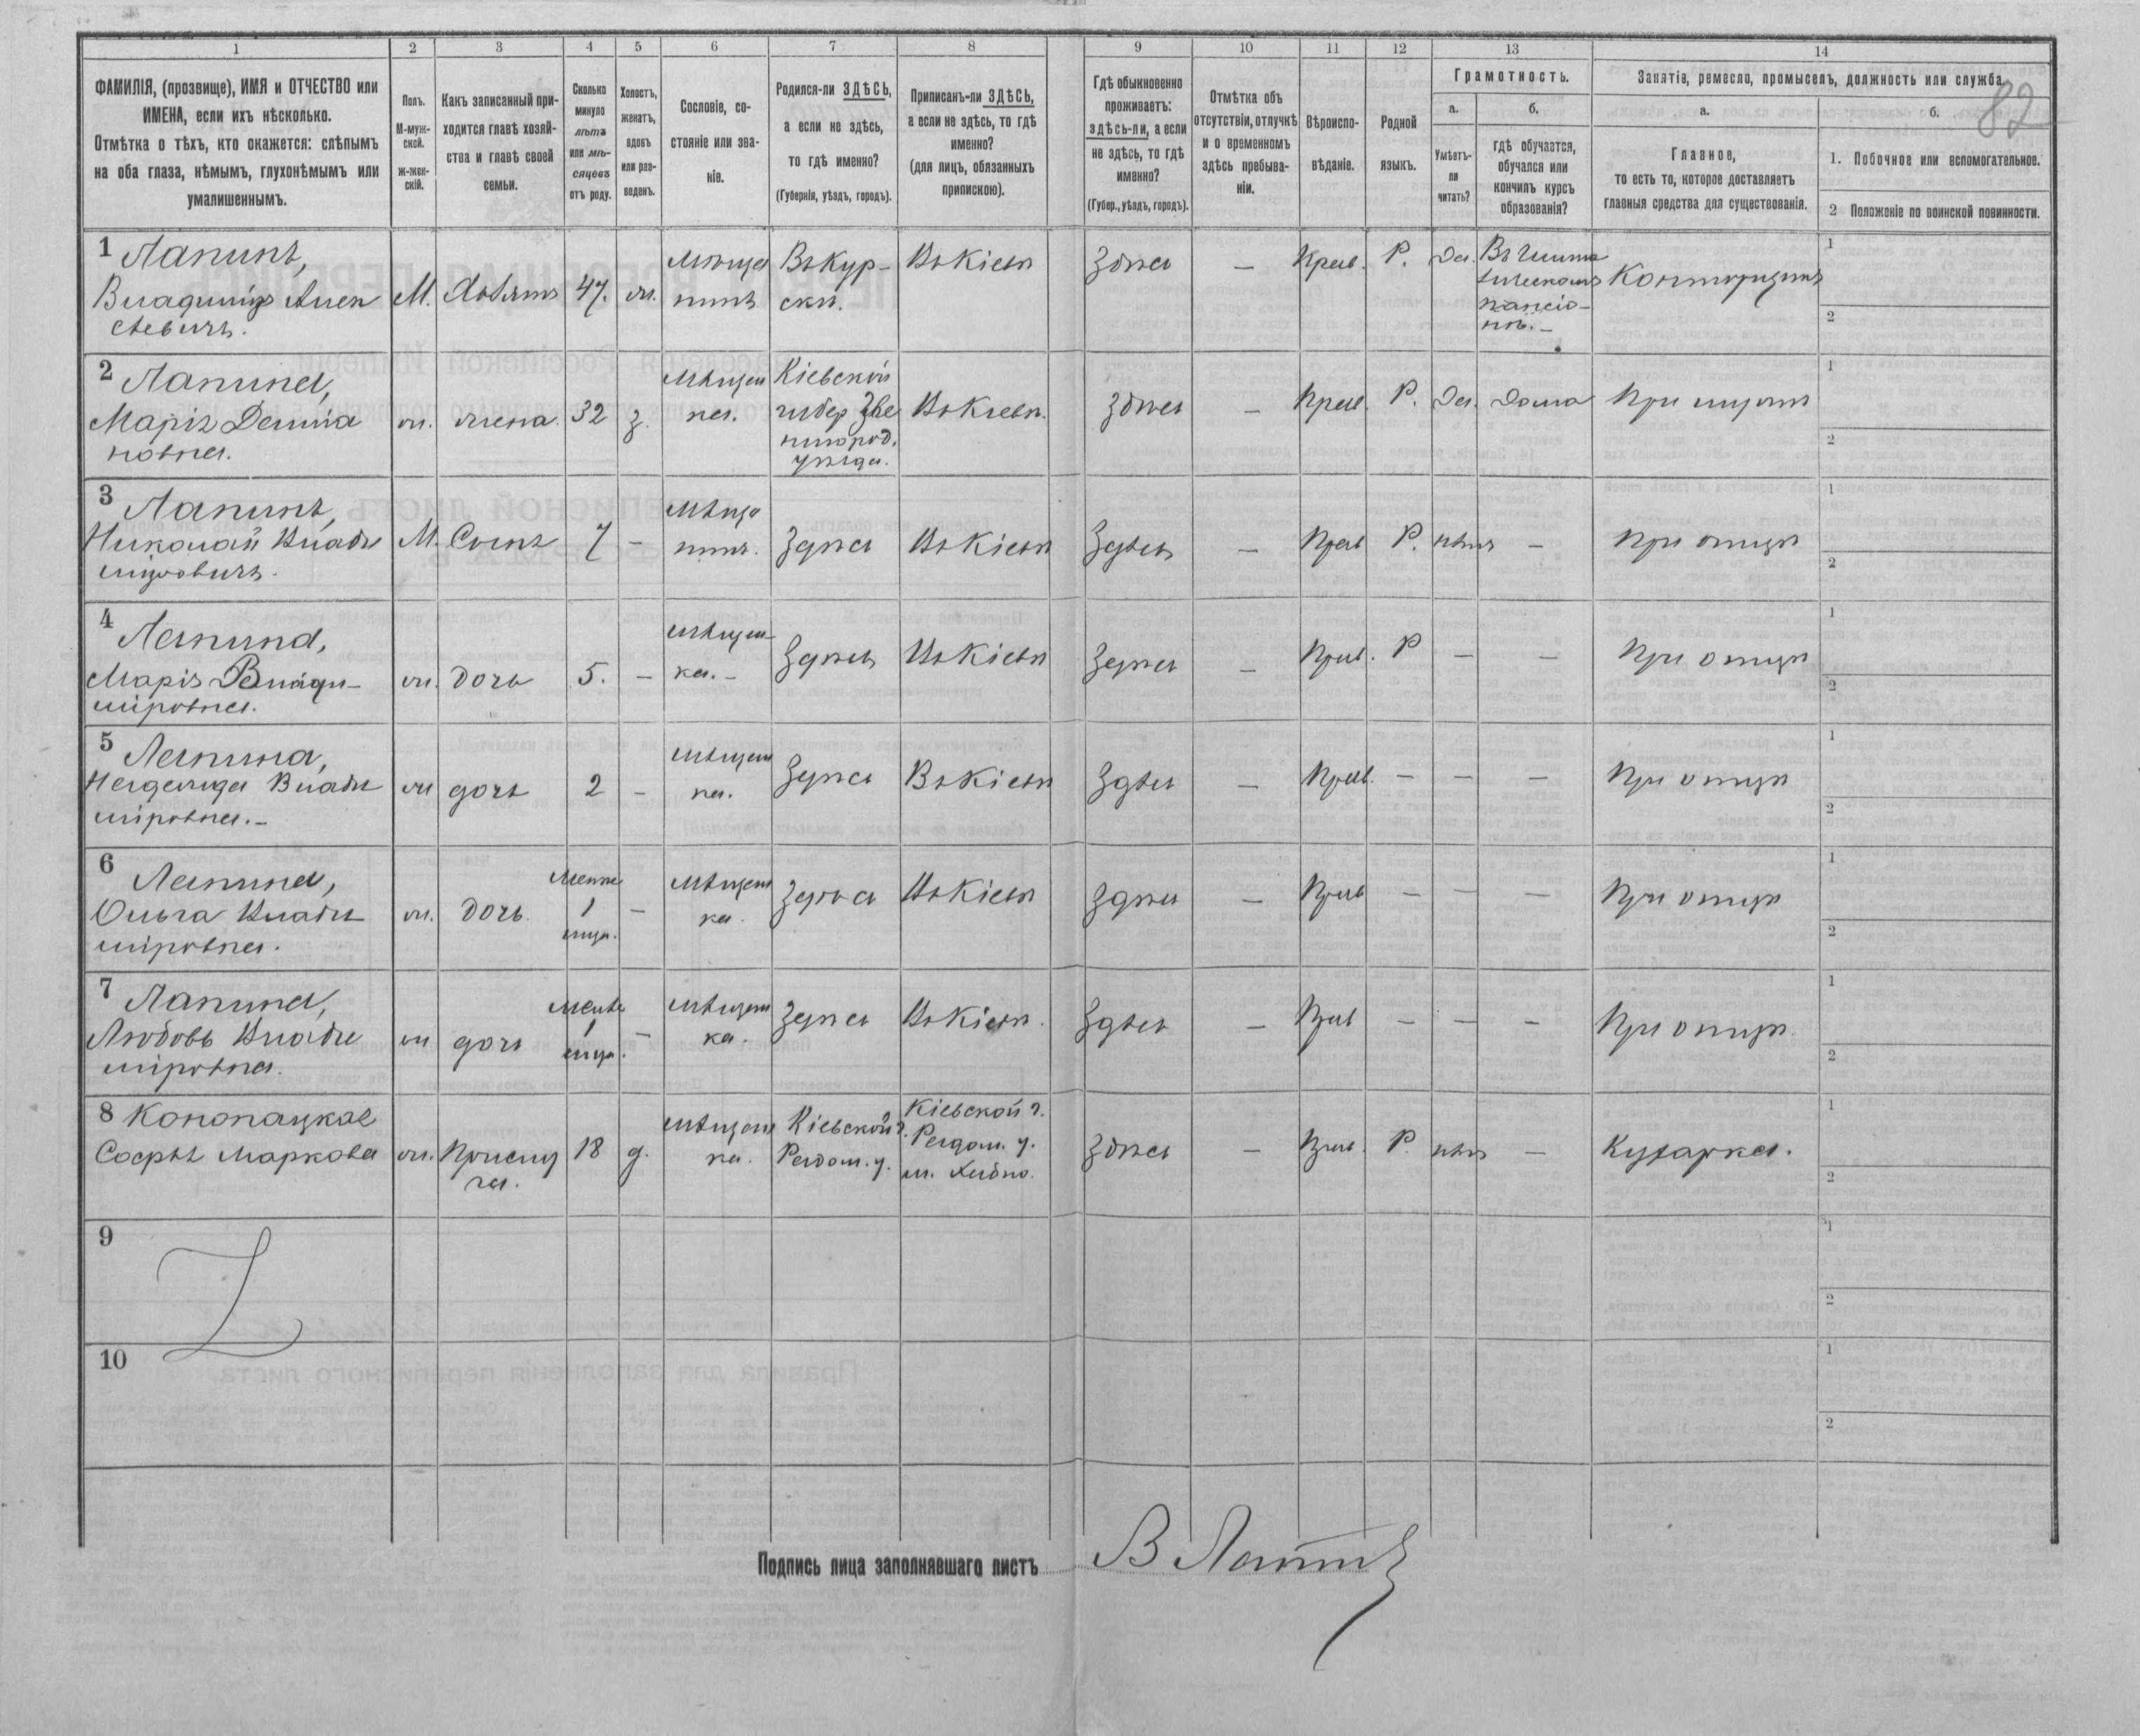 1 2 3 4 5 6 7 8 9 10 11 12 13 14
ФАМИЛІЯ, (прозвище), ИМЯ и ОТЧЕСТВО или
ИМЕНА, если ихъ нѣсколько.
Отмѣтка о тѣхъ, кто окажется: слѣпымъ
на оба глаза, нѣмымъ, глухонѣмымъ или
умалишеннымъ.
Полъ.
М-муж-
ской.
ж-жен-
скій.
Какъ записанный при-
ходится главѣ хозяй-
ства и главѣ своей
семьи.
Сколько
минуло
лѣтъ
или мѣ-
сяцевъ
отъ роду.
Холостъ,
женатъ,
вдовъ
или раз-
веденъ.
Сословіе, со-
стояніе или зва-
ніе.
Родился-ли ЗДѢСЬ,
а если не здѣсь,
то гдѣ именно?
(Губернія, уѣздъ, городъ).
Приписанъ-ли ЗДѢСЬ,
а если не здѣсь, то гдѣ
именно?
(для лицъ, обязанныхъ
припискою).
Гдѣ обыкновенно
проживаетъ:
здѣсь-ли, а если
не здѣсь, то гдѣ
именно?
(Губер., уѣздъ, городъ).
Отмѣтка объ
отсутствіи, отлучкѣ
и о временномъ
здѣсь пребыва-
ніи.
Вѣроиспо-
вѣданіе.
Родной
языкъ.
Грамотность.
а.
Умѣетъ-
ли
читать?
б.
гдѣ обучается,
обучался или
кончилъ курсъ
образованія?
Занятіе, ремесло, промыселъ, должность или служба.
82
а.
Главное,
то есть то, которое доставляетъ
главныя средства для существованія.
б.
1. Побочное или вспомогательное.
2 Положеніе по воинской повинности.
1 Лапинъ,
Владиміръ Алек
сѣевичъ.
М.
47.
ж.
мѣща
нинъ
Въ Кур-
скѣ.
Въ Кіевѣ
Здѣсь
—
Прав.
Р.
Да.
пансіо-
нѣ.—
Конторщикъ
1
2
2 Лапина,
Марія Деміа
новна.
ж.
жена.
32
з.
мѣщан
ка.
Кіевской
губер Зве
нигород.
уѣзда.
Въ Кіевѣ.
здѣсь
—
Прав.
Р.
Да.
дома
При мужѣ
1
2
3 Лапинъ,
Николай Влади
міровичъ.
М.
Сынъ
7
—
мѣща
нинъ.
Здѣсь
Въ Кіевѣ
Здѣсь
—
Прав
Р.
нѣтъ
—
При отцѣ
1
2
4 Лапина,
Марія Влади-
міровна.
ж.
дочь
5.
—
мѣщан-
ка.—
Здѣсь
Въ Кіевѣ
Здѣсь
—
Прав.
Р
—
—
При отцѣ
1
2
5 Лапина,
Надежда Влади
міровна.—
ж
дочь
2
—
мѣщан
ка.
Здѣсь
Въ Кіевѣ
Здѣсь
—
Прав.
—
—
—
При отцѣ
1
2
6 Лапина,
Ольга Влади
міровна.
ж.
дочь.
Менѣе
1
мѣщан
ка.
Здѣсь
Въ Кіевѣ
Здѣсь
—
Прав
—
—
—
При отцѣ
1
2
7 Лапина,
Любовь Влади
міровна.
ж
дочь
Менѣе
1
мѣщан
ка.
Здѣсь
Въ Кіевѣ.
Здѣсь
—
Прав
—
—
—
При отцѣ.
1
2
8 Конопацкая
Софья Маркова
ж.
Прислу
га.
18
д.
мѣщан
ка.
Кіевской г.
Радом. у.
Кіевской г.
Радом. у.
Здѣсь
—
Прав.
Р.
нѣтъ
—
Кухарка.
1
2
9
1
2
10
1
2
Подпись лица заполнявшаго листъ В Лапинъ